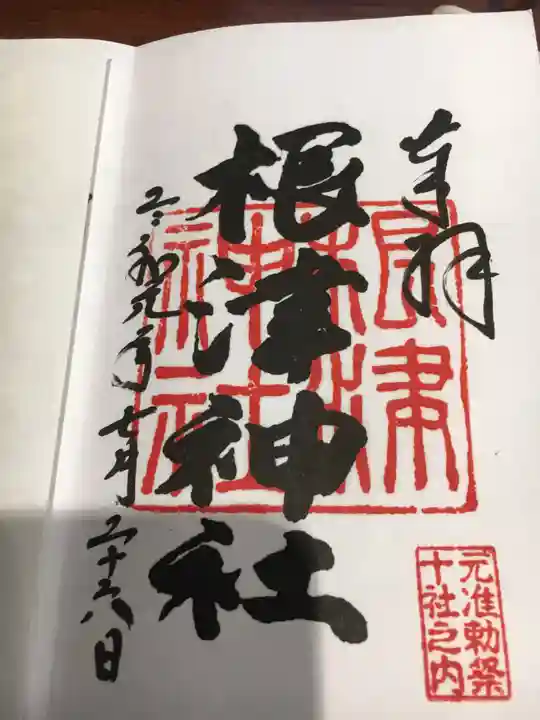 奉拝
根津神社
根津
神社
令和元年七月二十六日
元准勅祭
十社之内